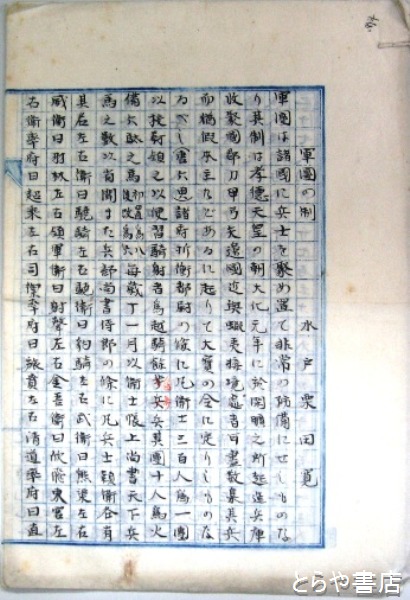 軍團の制　水戸栗田寛
軍團は諸國に兵士を聚め置て非常の防備にせしものな
り其制は孝德天皇の朝大化元年に於閑曠之所起造兵庫
收聚國郡刀甲弓矢邊國近與蝦夷接境處者可盡數集其兵
而猶假本主などあるに起りて大寶の令に定りしものな
るべし唐六典諸府折衝都尉の條に凡衞士三百人爲一團
以校尉領之以便習騎射者爲越騎餘爲步兵其團十人爲火
備六馱之馬初置爲八馬後改爲六每歲十一月以衞士帳上尚書天下兵
馬之數以省聞また兵部尚書侍郎の條に凡兵士隸衞各有
其名左右衞曰驍騎左右驍衞曰豹騎左右武衞曰熊渠左右
威衞曰羽林左右領軍衞曰射聲左右金吾衞曰佽飛東宮左
右衞率府曰超乘左右司禦率府曰旅賁左右清道率府曰直
とらや書店